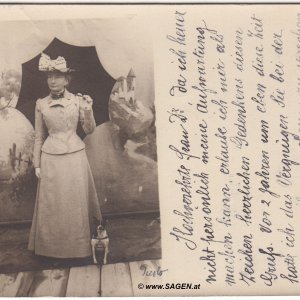 Hochverehrte Frau Dr! da ich heuer
nicht persönlich meine Aufwartung
machen kann, erlaube ich mir als
Zeichen herzlichen Gedenkens diesen
Gruß. Vor 2 Jahren um eben diese Zeit
hatte ich das Vergnügen Sie bei der
© www.SAGEN.at